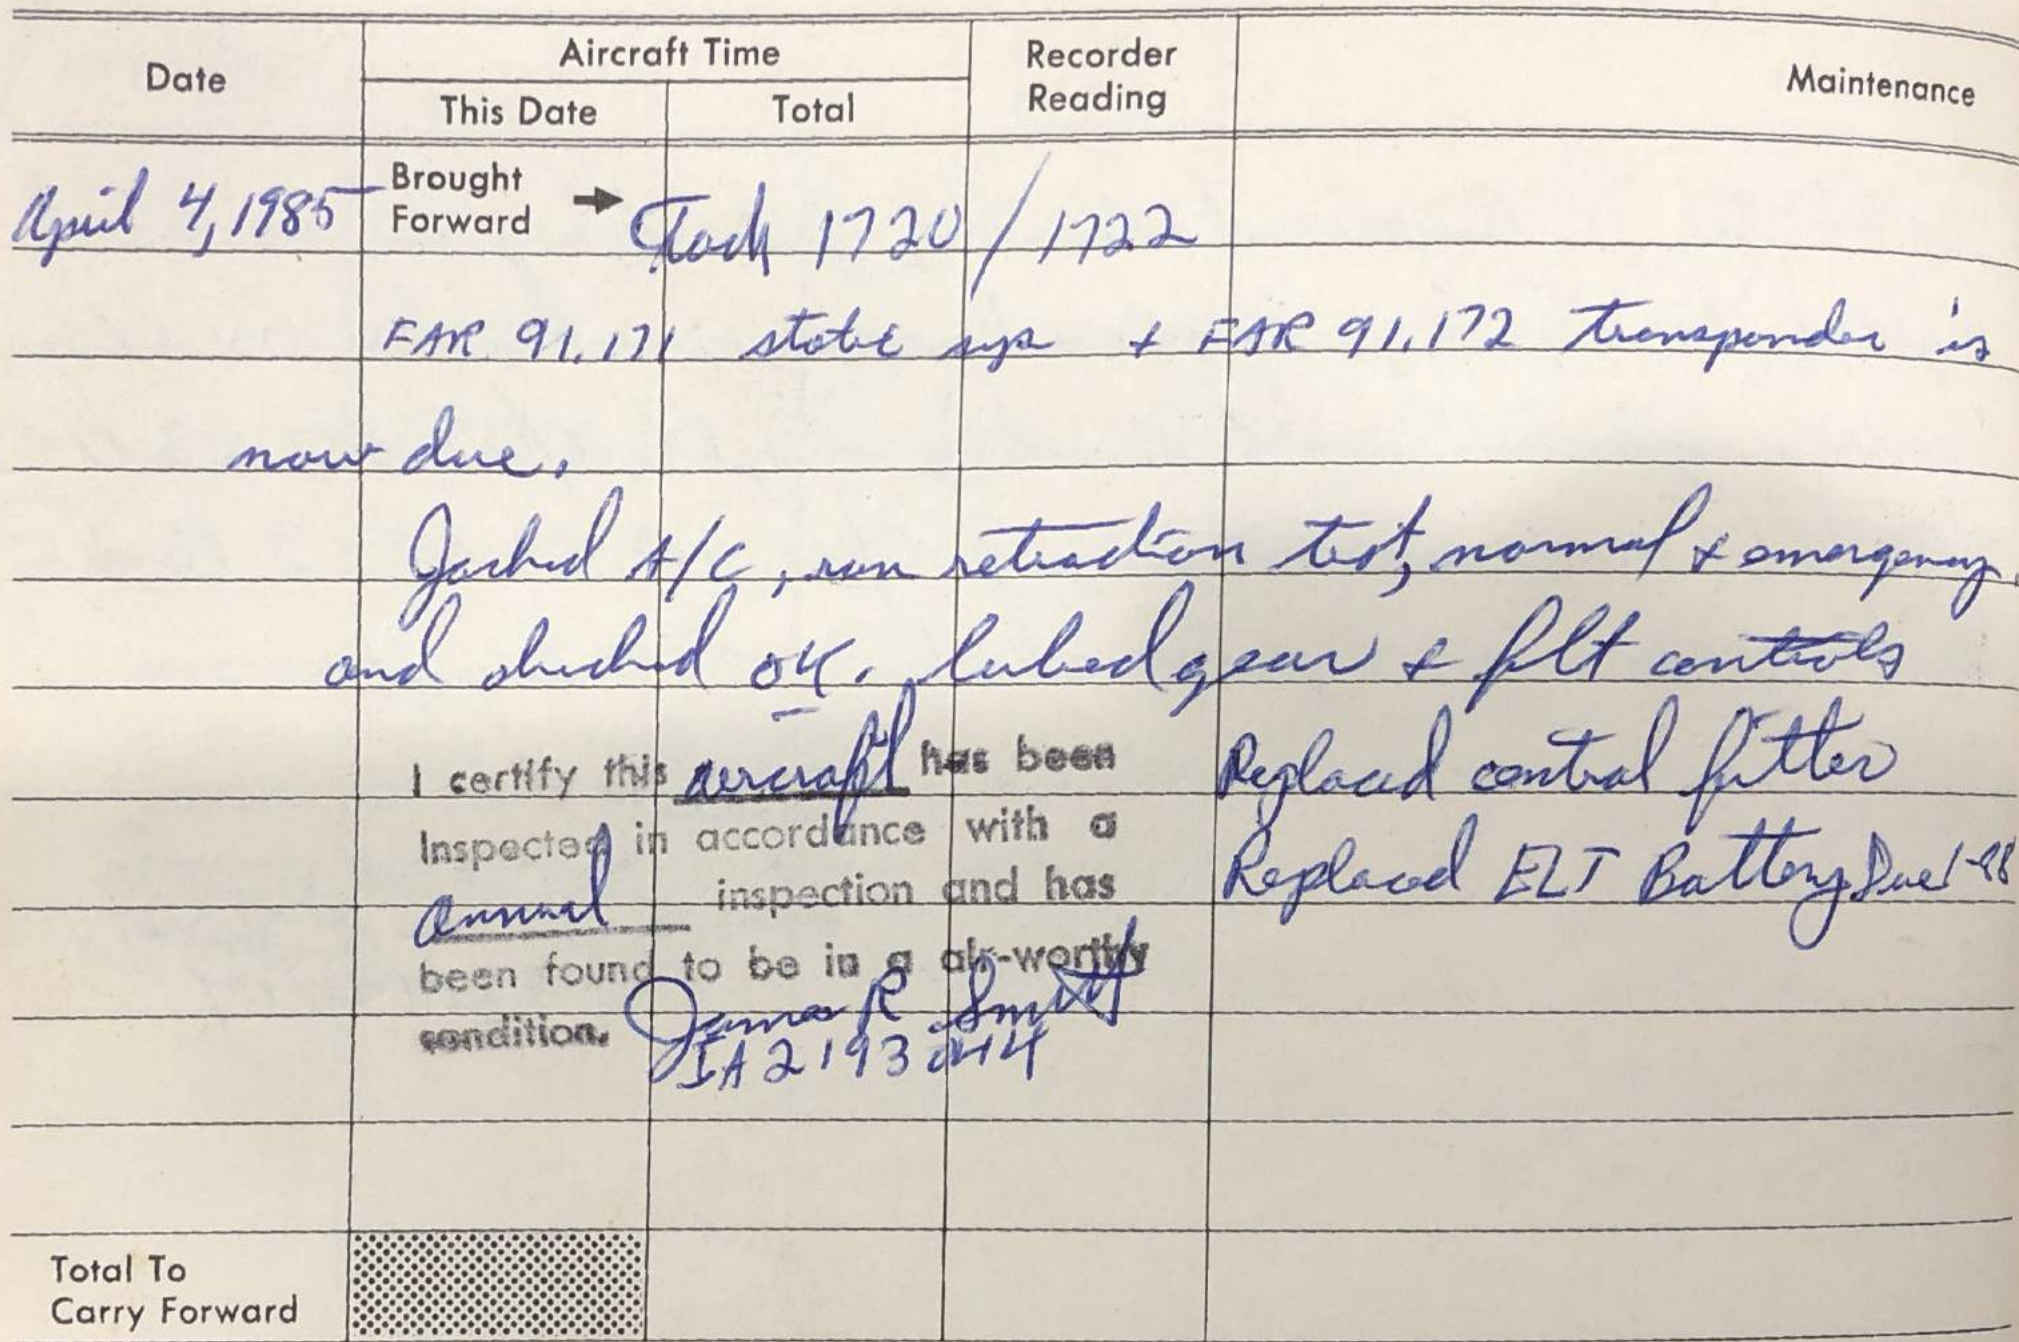 Date
Aircraft Time
This Date
Total
Recorder
Reading
Maintenance
April 4, 1985
Brought
Forward →
Tach 1720 / 1722
FAR 91.171 static sys + FAR 91.172 transponder is
now due.
Jacked A/C, run retraction test, normal & emergency
and checked OK. lubed gear & flt controls
I certify this aircraft has been
Inspected in accordance with a
annual inspection and has
been found to be in a air-worthy
condition. James R Smith
IA 2193
Replaced central filter
Replaced ELT Battery Due 1-88
Total To
Carry Forward